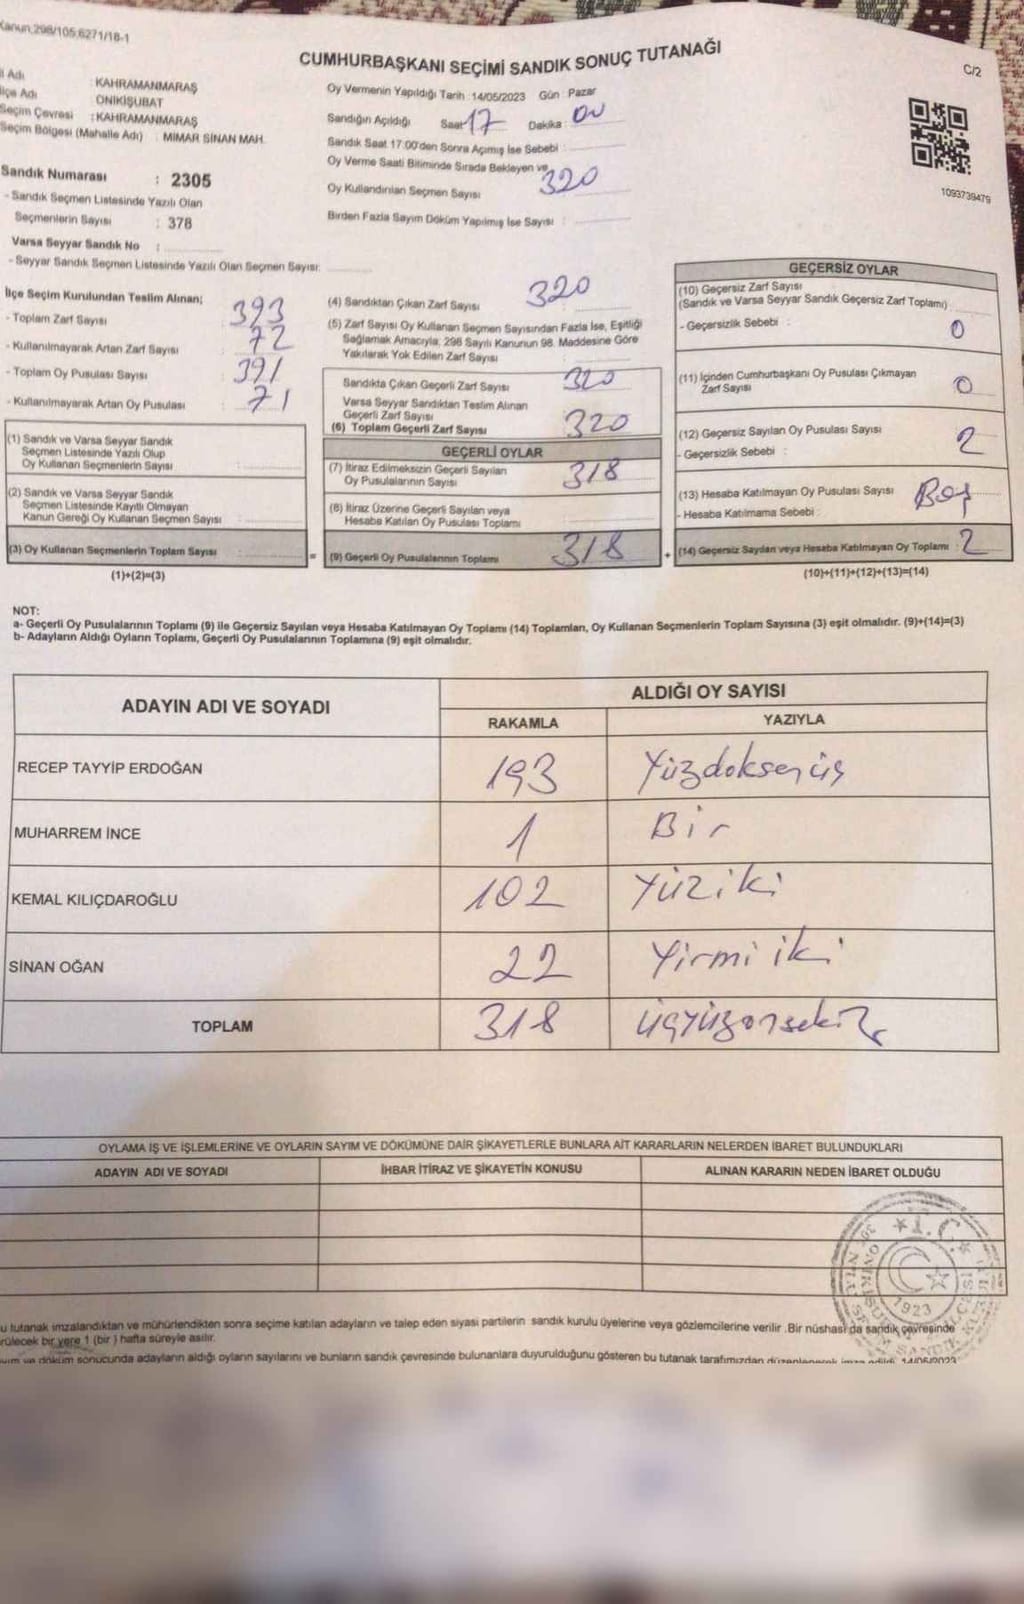 Kanun,298/105,6271/18-1
CUMHURBAŞKANI SEÇİMİ SANDIK SONUÇ TUTANAĞI
C/2
İl Adı : KAHRAMANMARAŞ
İlçe Adı : ONİKİŞUBAT
Seçim Çevresi : KAHRAMANMARAŞ
Seçim Bölgesi (Mahalle Adı) : MİMAR SİNAN MAH.
Sandık Numarası : 2305
- Sandık Seçmen Listesinde Yazılı Olan
Seçmenlerin Sayısı : 378
Varsa Seyyar Sandık No :
- Seyyar Sandık Seçmen Listesinde Yazılı Olan Seçmen Sayısı:
Oy Vermenin Yapıldığı Tarih :14/05/2023 Gün : Pazar
Sandığın Açıldığı Saat 17 Dakika : 00
Sandık Saat 17:00'den Sonra Açımış İse Sebebi :
Oy Verme Saati Bitiminde Sırada Bekleyen ve
Oy Kullandırılan Seçmen Sayısı 320
Birden Fazla Sayım Döküm Yapılmış İse Sayısı :
1093739479
İlçe Seçim Kurulundan Teslim Alınan;
- Toplam Zarf Sayısı : 393
- Kullanılmayarak Artan Zarf Sayısı : 72
- Toplam Oy Pusulası Sayısı : 391
- Kullanılmayarak Artan Oy Pusulası : 71
(1) Sandık ve Varsa Seyyar Sandık
Seçmen Listesinde Yazılı Olup
Oy Kullanan Seçmenlerin Sayısı :
(2) Sandık ve Varsa Seyyar Sandık
Seçmen Listesinde Kayıtlı Olmayan
Kanun Gereği Oy Kullanan Seçmen Sayısı :
(3) Oy Kullanan Seçmenlerin Toplam Sayısı :
(1)+(2)=(3)
=
(4) Sandıktan Çıkan Zarf Sayısı : 320
(5) Zarf Sayısı Oy Kullanan Seçmen Sayısından Fazla İse, Eşitliği
Sağlamak Amacıyla, 298 Sayılı Kanunun 98. Maddesine Göre
Yakılarak Yok Edilen Zarf Sayısı :
Sandıkta Çıkan Geçerli Zarf Sayısı : 320
Varsa Seyyar Sandıktan Teslim Alınan
Geçerli Zarf Sayısı
(6) Toplam Geçerli Zarf Sayısı 320
GEÇERLİ OYLAR
(7) İtiraz Edilmeksizin Geçerli Sayılan
Oy Pusulalarının Sayısı 318
(8) İtiraz Üzerine Geçerli Sayılan veya
Hesaba Katılan Oy Pusulası Toplamı :
(9) Geçerli Oy Pusulalarının Toplamı 318
+
GEÇERSİZ OYLAR
(10) Geçersiz Zarf Sayısı
(Sandık ve Varsa Seyyar Sandık Geçersiz Zarf Toplamı)
- Geçersizlik Sebebi : 0
(11) İçinden Cumhurbaşkanı Oy Pusulası Çıkmayan
Zarf Sayısı 0
(12) Geçersiz Sayılan Oy Pusulası Sayısı 2
- Geçersizlik Sebebi :
(13) Hesaba Katılmayan Oy Pusulası Sayısı Boş
- Hesaba Katılmama Sebebi :
(14) Geçersiz Sayılan veya Hesaba Katılmayan Oy Toplamı : 2
(10)+(11)+(12)+(13)=(14)
NOT:
a- Geçerli Oy Pusulalarının Toplamı (9) ile Geçersiz Sayılan veya Hesaba Katılmayan Oy Toplamı (14) Toplamları, Oy Kullanan Seçmenlerin Toplam Sayısına (3) eşit olmalıdır. (9)+(14)=(3)
b- Adayların Aldığı Oyların Toplamı, Geçerli Oy Pusulalarının Toplamına (9) eşit olmalıdır.
ADAYIN ADI VE SOYADI
ALDIĞI OY SAYISI
RAKAMLA YAZIYLA
RECEP TAYYİP ERDOĞAN 193 Yüzdoksenüş
MUHARREM İNCE 1 Bir
KEMAL KILIÇDAROĞLU 102 Yüziki
SİNAN OĞAN 22 Yirmi iki
TOPLAM 318 üçyüzonsekiz
OYLAMA İŞ VE İŞLEMLERİNE VE OYLARIN SAYIM VE DÖKÜMÜNE DAİR ŞİKAYETLERLE BUNLARA AİT KARARLARIN NELERDEN İBARET BULUNDUKLARI
ADAYIN ADI VE SOYADI İHBAR İTİRAZ VE ŞİKAYETİN KONUSU ALINAN KARARIN NEDEN İBARET OLDUĞU
T.C.
1923
u tutanak imzalandıktan ve mühürlendikten sonra seçime katılan adayların ve talep eden siyasi partilerin sandık kurulu üyelerine veya gözlemcilerine verilir .Bir nüshası da sandık çevresinde
rülecek bir yere 1 (bir ) hafta süreyle asılır.
yım ve döküm sonucunda adayların aldığı oyların sayılarını ve bunların sandık çevresinde bulunanlara duyurulduğunu gösteren bu tutanak tarafımızdan düzenlenerek imza edildi. 14/05/2023